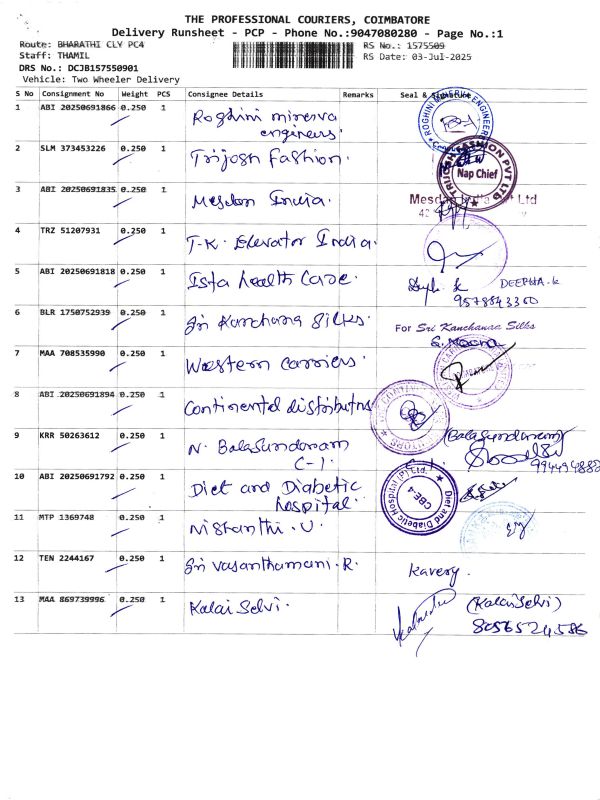 THE PROFESSIONAL COURIERS, COIMBATORE
Delivery Runsheet - PCP - Phone No.:9047080280 - Page No.:1
Route: BHARATHI CLY PC4 RS No.: 1575509
Staff: THAMIL RS Date: 03-Jul-2025
DRS No.: DCJB157550901
Vehicle: Two Wheeler Delivery
S No Consignment No Weight PCS Consignee Details Remarks Seal & Signature
1 ABI 20250691866 0.250 1 Roghini minerva
engineers.
ROGHINI MINERVA ENGINEERS
2 SLM 373453226 0.250 1 Trijosh Fashion.
TRIJOSH FASHION PVT LTD
Nap Chief
3 ABI 20250691835 0.250 1 Mesdan India.
Mesdan India Pvt Ltd
42
4 TRZ 51207931 0.250 1 T.K. Elevator India.
5 ABI 20250691818 0.250 1 Ista health Care.
DEEPHA.K
9578843300
6 BLR 1750752939 0.250 1 Sri Kanchana Silks.
For Sri Kanchanaa Silks
7 MAA 708535990 0.250 1 Western carriers.
8 ABI 20250691894 0.250 1 Continental distributrs
9 KRR 50263612 0.250 1 N. BalaSundaram
C-1.
(BalaSundaram)
10 ABI 20250691792 0.250 1 Diet and Diabetic
hospital.
Diet and Diabetic Hospital (P) Ltd.
CBE-4
11 MTP 1369748 0.250 1 Nishanthi.U.
12 TEN 2244167 0.250 1 Sri Vasanthamani.R.
Kavery.
13 MAA 869739996 0.250 1 Kalai Selvi.
(Kalai Selvi)
8056524586